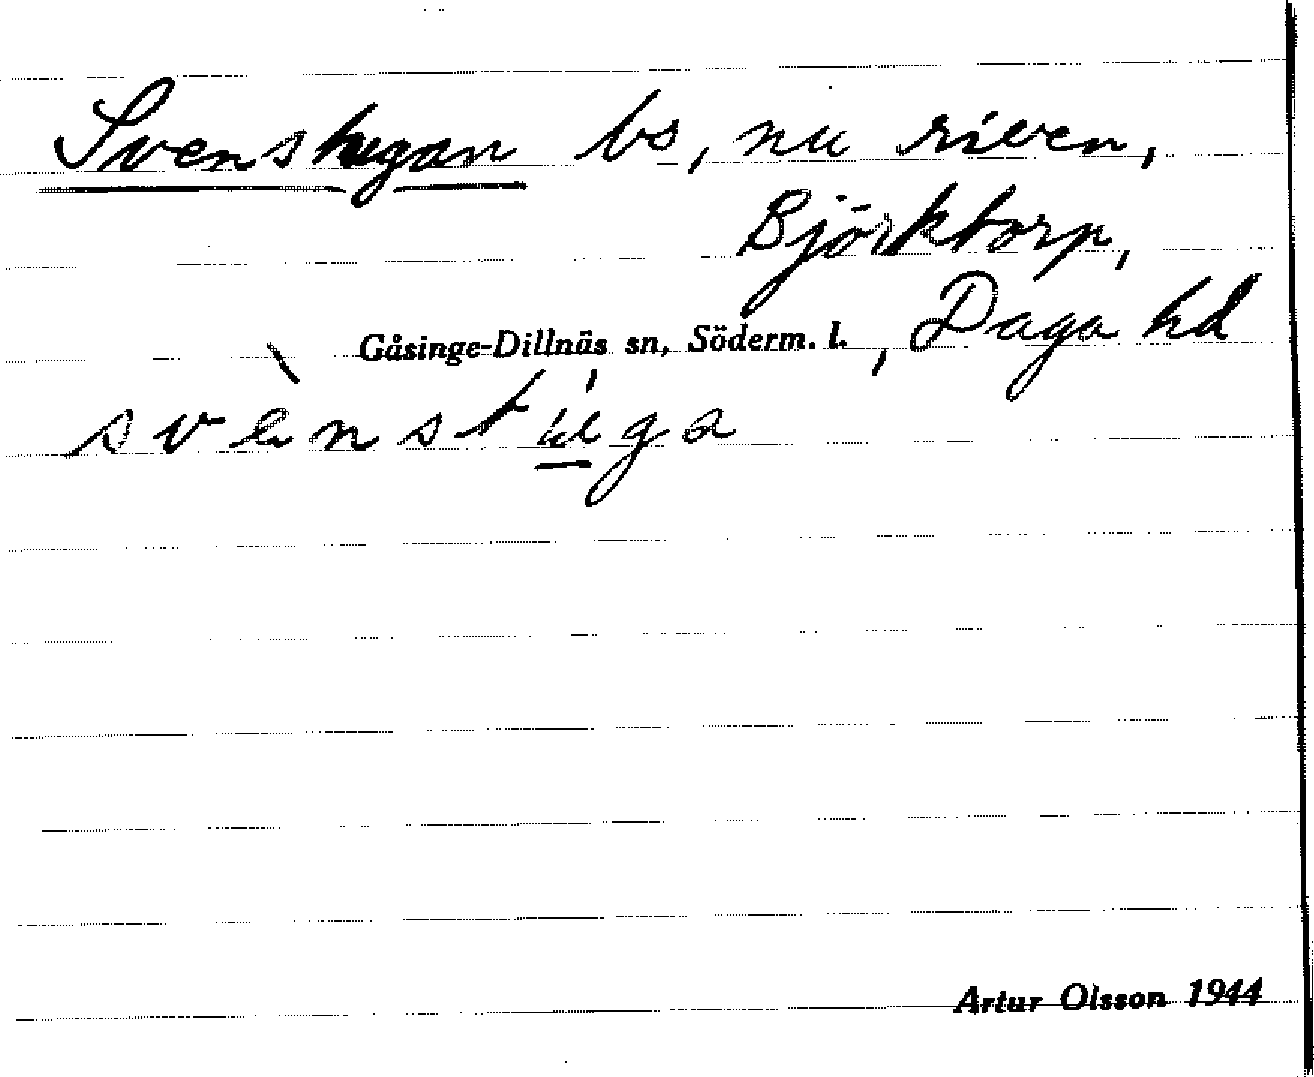 Svenshugan bs, nu riven,
Björktorp,
Gåsinge-Dillnäs sn, Söderm. l., Daga hd
svènstu̲ga
Artur Olsson 1944